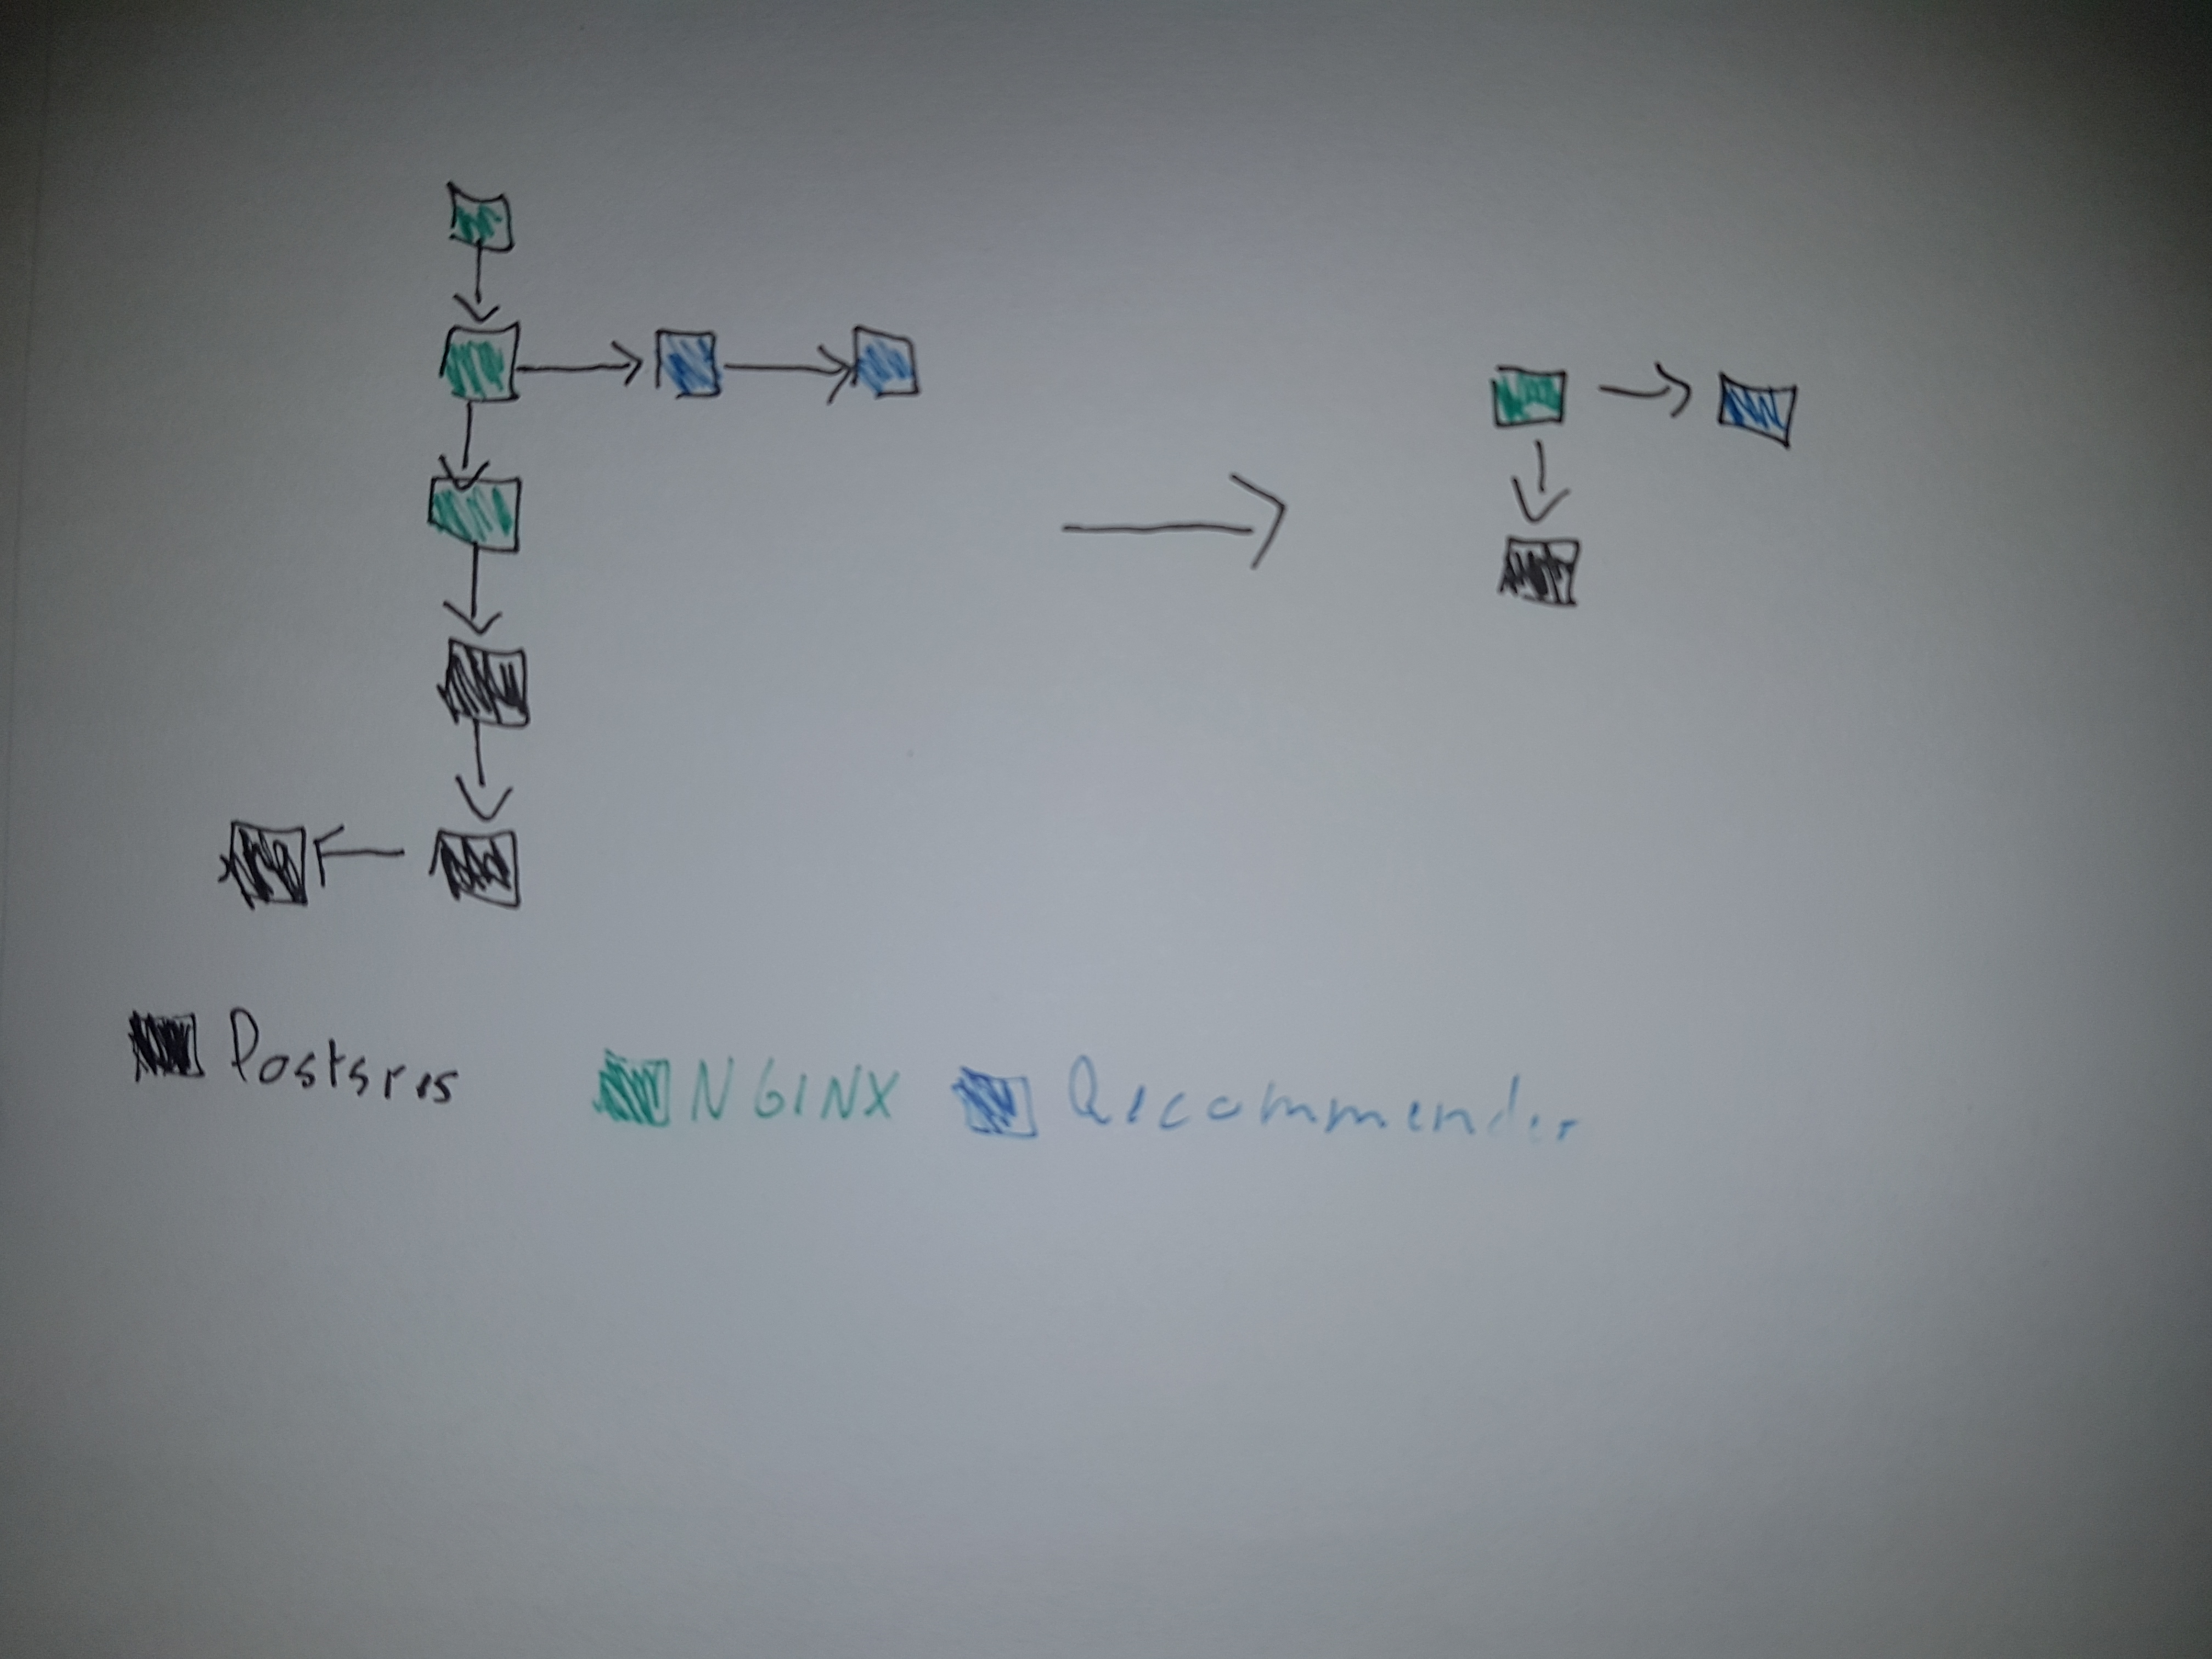 Postgres
NGINX
Recommender